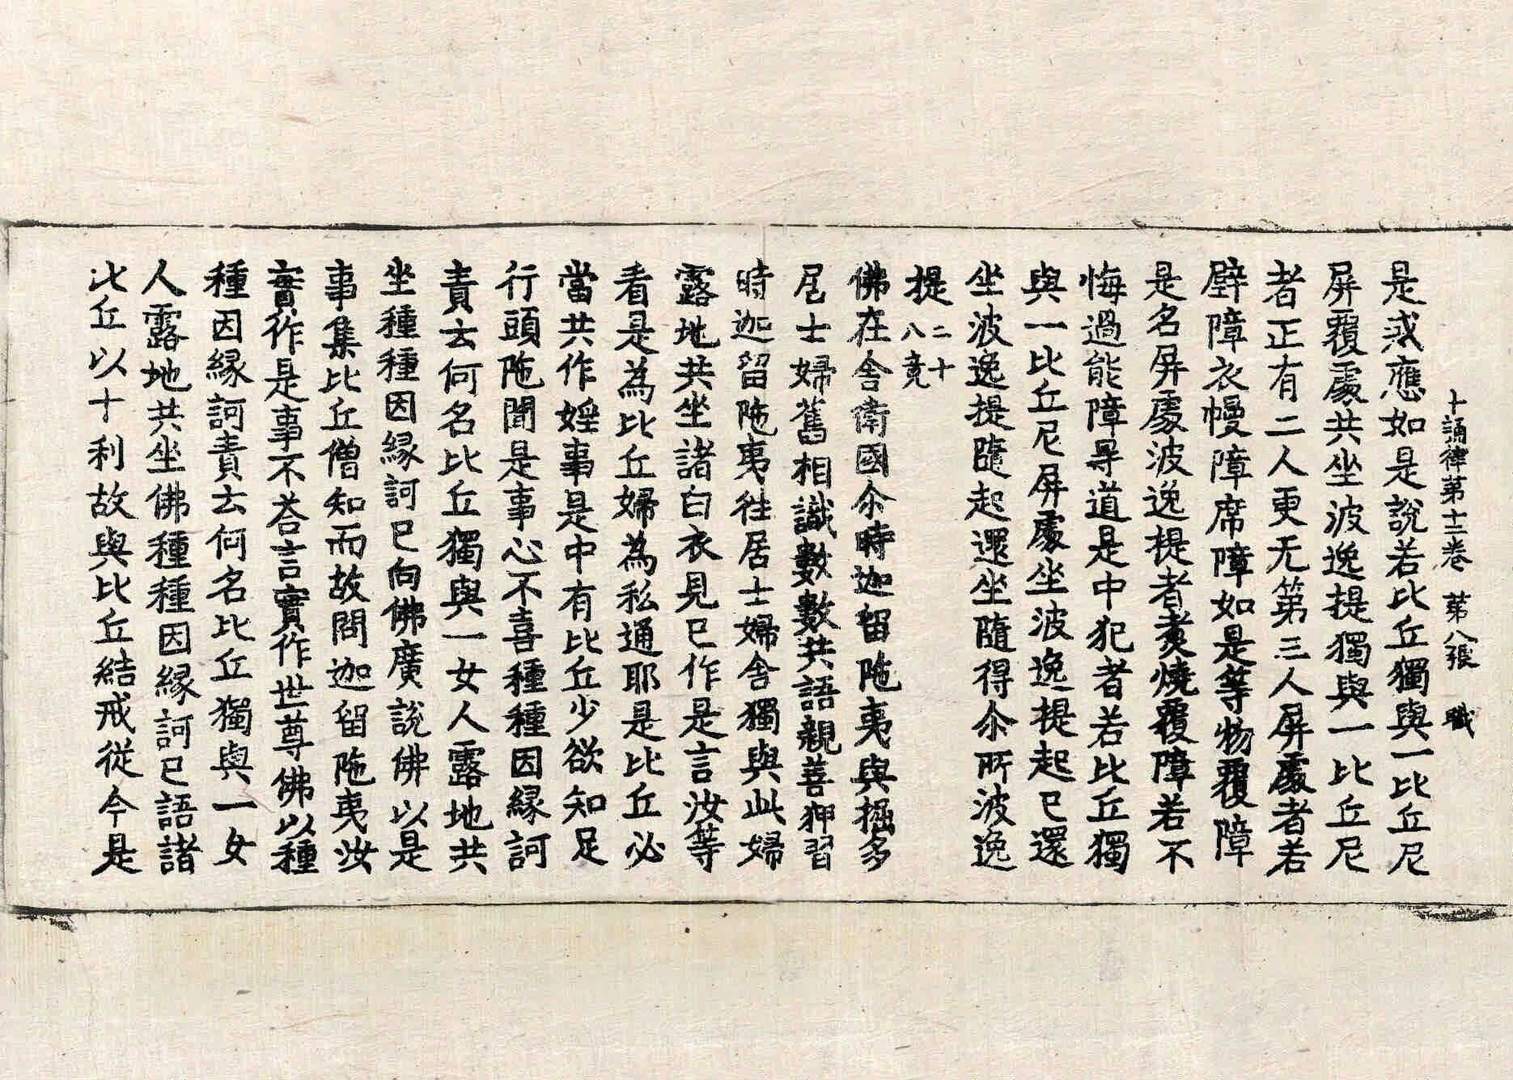 十誦律第十二卷 第八張 職
是戒應如是說若比丘獨與一比丘尼
屏覆處共坐波逸提獨與一比丘尼
者正有二人更无第三人屏處者若
壁障衣幔障席障如是等物覆障
是名屏處波逸提者煑燒覆障若不
悔過能障㝵道是中犯者若比丘獨
與一比丘尼屏處坐波逸提起已還
坐波逸提隨起還坐隨得尒所波逸
提二十八竟
佛在舍衛國尒時迦留陁夷與掘多
居士婦舊相識數數共語親善狎習
時迦留陁夷往居士婦舍獨與此婦
露地共坐諸白衣見已作是言汝等
看是為比丘婦為私通耶是比丘必
當共作婬事是中有比丘少欲知足
行頭陁聞是事心不喜種種因緣訶
責云何名比丘獨與一女人露地共
坐種種因緣訶已向佛廣說佛以是
事集比丘僧知而故問迦留陁夷汝
實作是事不荅言實作世尊佛以種
種因緣訶責云何名比丘獨與一女
人露地共坐佛種種因緣訶已語諸
比丘以十利故與比丘結戒從今是